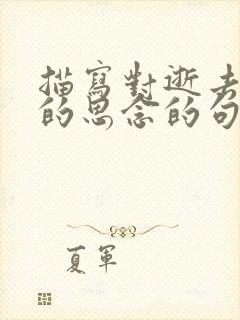 描寫對逝去
的思念的句
夏軍